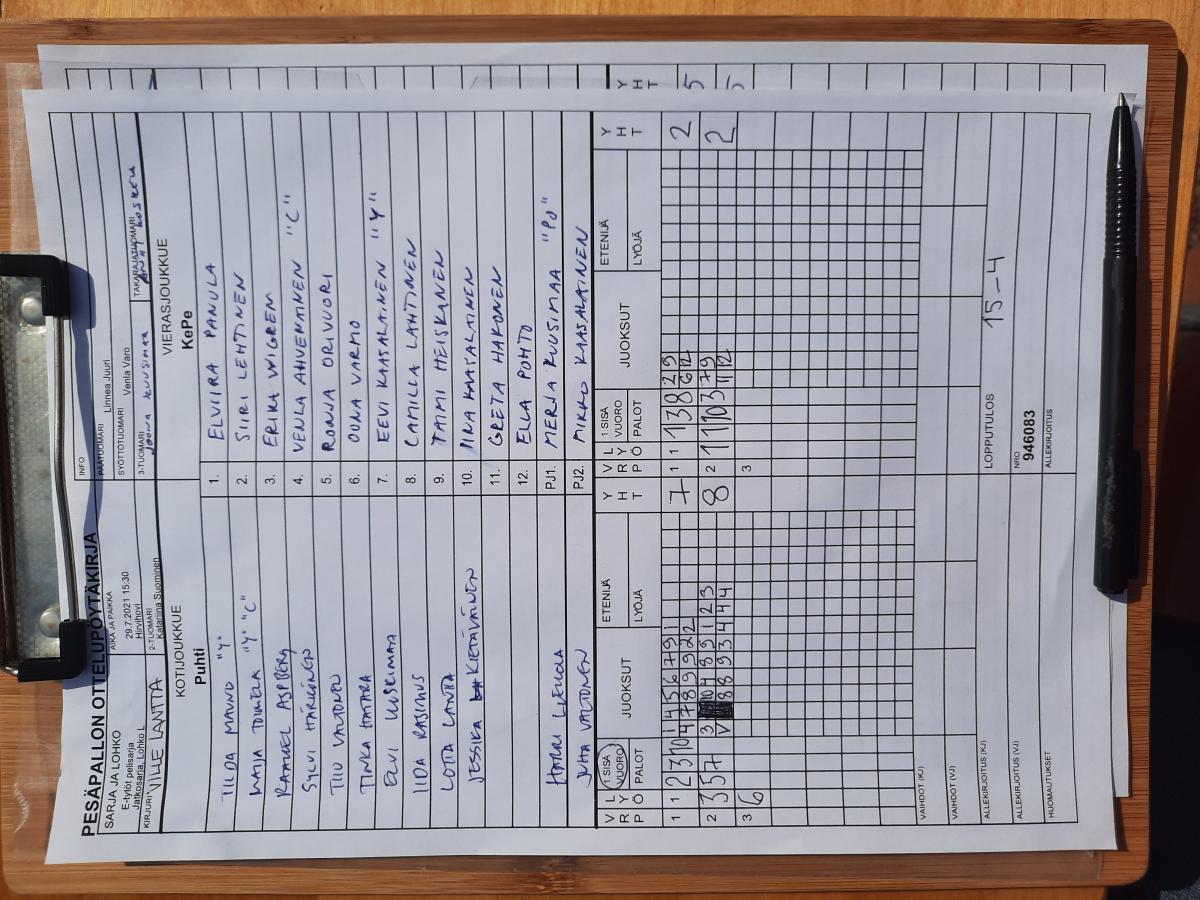 PESÄPALLON OTTELUPÖYTÄKIRJA
SARJA JA LOHKO
E-tytöt pelisarja
Jatkosarja, Lohko L
KIRJURI VILLE LANTTA
AIKA JA PAIKKA
29.7.2021 15:30
Hirvihovi
2-TUOMARI
Katariina Suominen
INFO
PÄÄTUOMARI Linnea Juuri
SYÖTTÖTUOMARI Venla Varo
3-TUOMARI JOONA KUUSIMAA
TAKARAJATUOMARI
KOTIJOUKKUE
Puhti
VIERASJOUKKUE
KePe
TILDA MAUNO "Y" 1. ELVIIRA PANULA
2. SIIRI LEHTINEN
3. ERIKA WIGREN
SYLVI HÄRKÖNEN 4. VENLA AHVENAINEN "C"
TIIU VALTONEN 5. RONJA ORIVUORI
6. OONA VARMO
7. EEVI KAASALAINEN "Y"
IIDA RASIMUS 8. CAMILLA LAHTINEN
9. TAIMI HEISKANEN
JESSIKA KIETÄVÄINEN 10. IINA KAASALAINEN
11. GRETA HAKONEN
12. ELLA POHTO
HARRI PJ1. MERJA KUUSIMAA "PJ"
JUHA VALTONEN PJ2. MIKKO KAASALAINEN
V R P L Y Ö 1 SISÄ VUORO PALOT JUOKSUT ETENIJÄ LYÖJÄ Y H T V R P L Y Ö 1 SISÄ VUORO PALOT JUOKSUT ETENIJÄ LYÖJÄ Y H T
1 1 2 3 10 1 4 5 6 7 9 1 7 1 1 1 3 8 2 9 2
4 7 8 9 9 2 2 6 12
2 3 5 7 3 10 4 8 9 1 2 3 8 2 11 10 3 7 9 2
V 8 8 9 3 4 4 4 11 12
3 6 3
VAIHDOT (KJ)
VAIHDOT (VJ)
ALLEKIRJOITUS (KJ)
LOPPUTULOS 15-4
ALLEKIRJOITUS (VJ)
NRO
946083
HUOMAUTUKSET
ALLEKIRJOITUS
Y H T
5
5